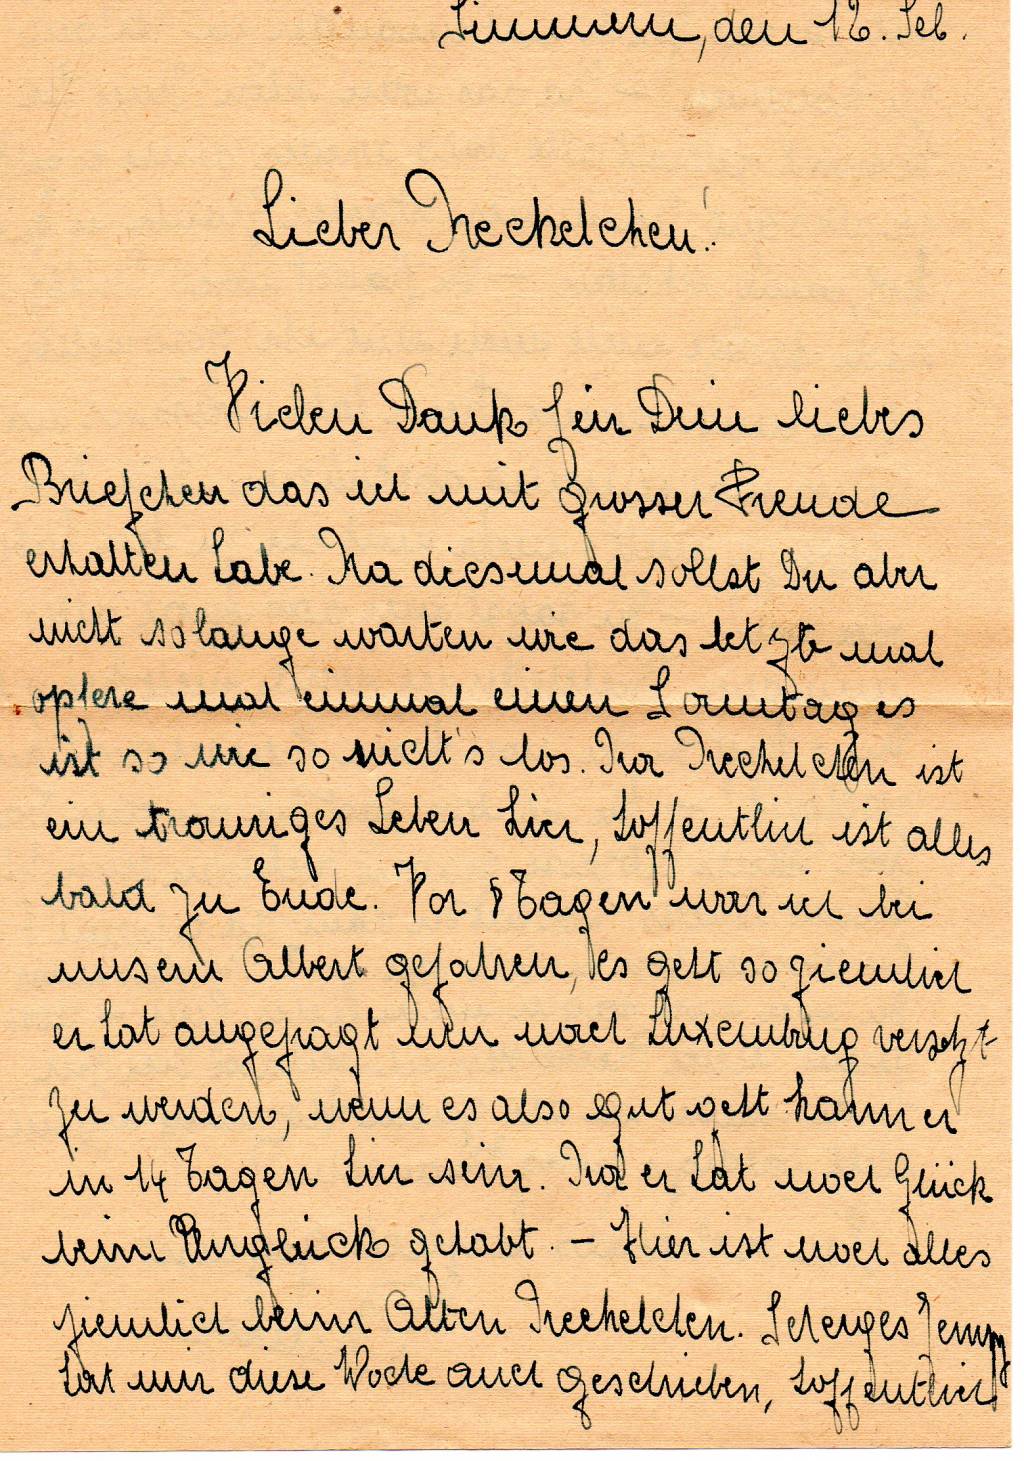 Simmern, den 12. Feb.
Lieber Neckelchen!
Vielen Dank für Dein liebes
Briefchen das ich mit grosser Freude
erhalten habe. Na diesmal sollst Du aber
nicht solange warten wie das letzte mal
opfere mal einmal einen Sonntag es
ist so wie so nicht's los. Na Neckelchen ist
ein trauriges Leben hier, hoffentlich ist alles
bald zu Ende. Vor 8 Tagen war ich bei
unserm Albert gefahren, es geht so ziemlich
er hat angefragt um nach Luxemburg versetzt
zu werden, wenn es also gut geht kann er
in 14 Tagen hier sein. Na er hat noch Glück
beim Unglück gehabt. – Hier ist noch alles
ziemlich beim Alten Neckelchen. Jempy
hat mir diese Woche auch geschrieben, hoffentlich